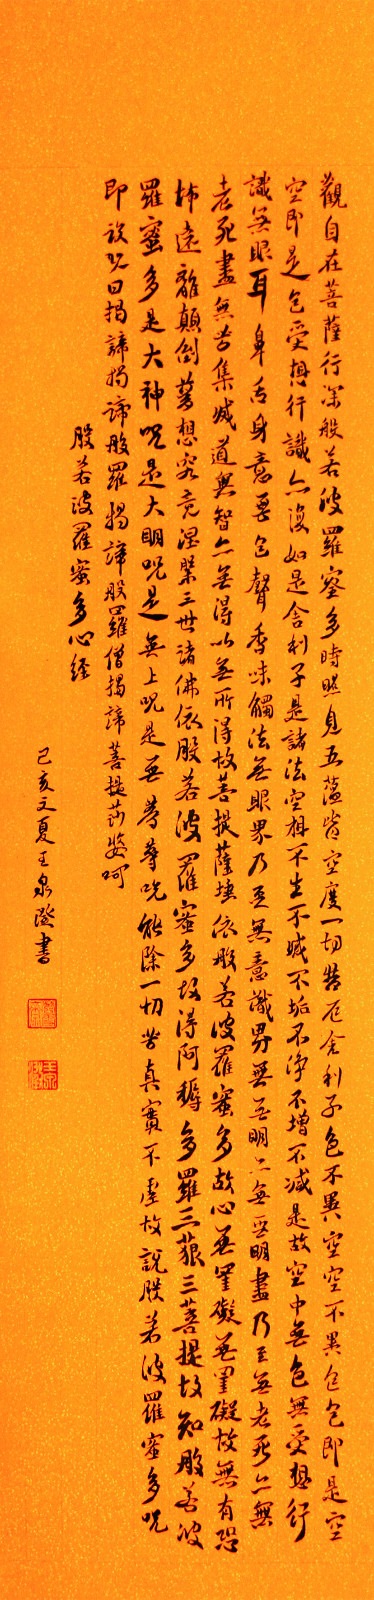 觀自在菩薩行深般若波羅蜜多時照見五蘊皆空度一切苦厄舍利子色不異空空不異色色即是空
空即是色受想行識亦復如是舍利子是諸法空相不生不滅不垢不淨不增不減是故空中無色無受想行
識無眼耳鼻舌身意無色聲香味觸法無眼界乃至無意識界無無明亦無無明盡乃至無老死亦無
老死盡無苦集滅道無智亦無得以無所得故菩提薩埵依般若波羅蜜多故心無罣礙無罣礙故無有恐
怖遠離顛倒夢想究竟涅槃三世諸佛依般若波羅蜜多故得阿耨多羅三藐三菩提故知般若波
羅蜜多是大神咒是大明咒是無上咒是無等等咒能除一切苦真實不虛故說般若波羅蜜多咒
即說咒曰揭諦揭諦般羅揭諦般羅僧揭諦菩提莎婆呵
般若波羅蜜多心經
己亥之夏王泉澄書